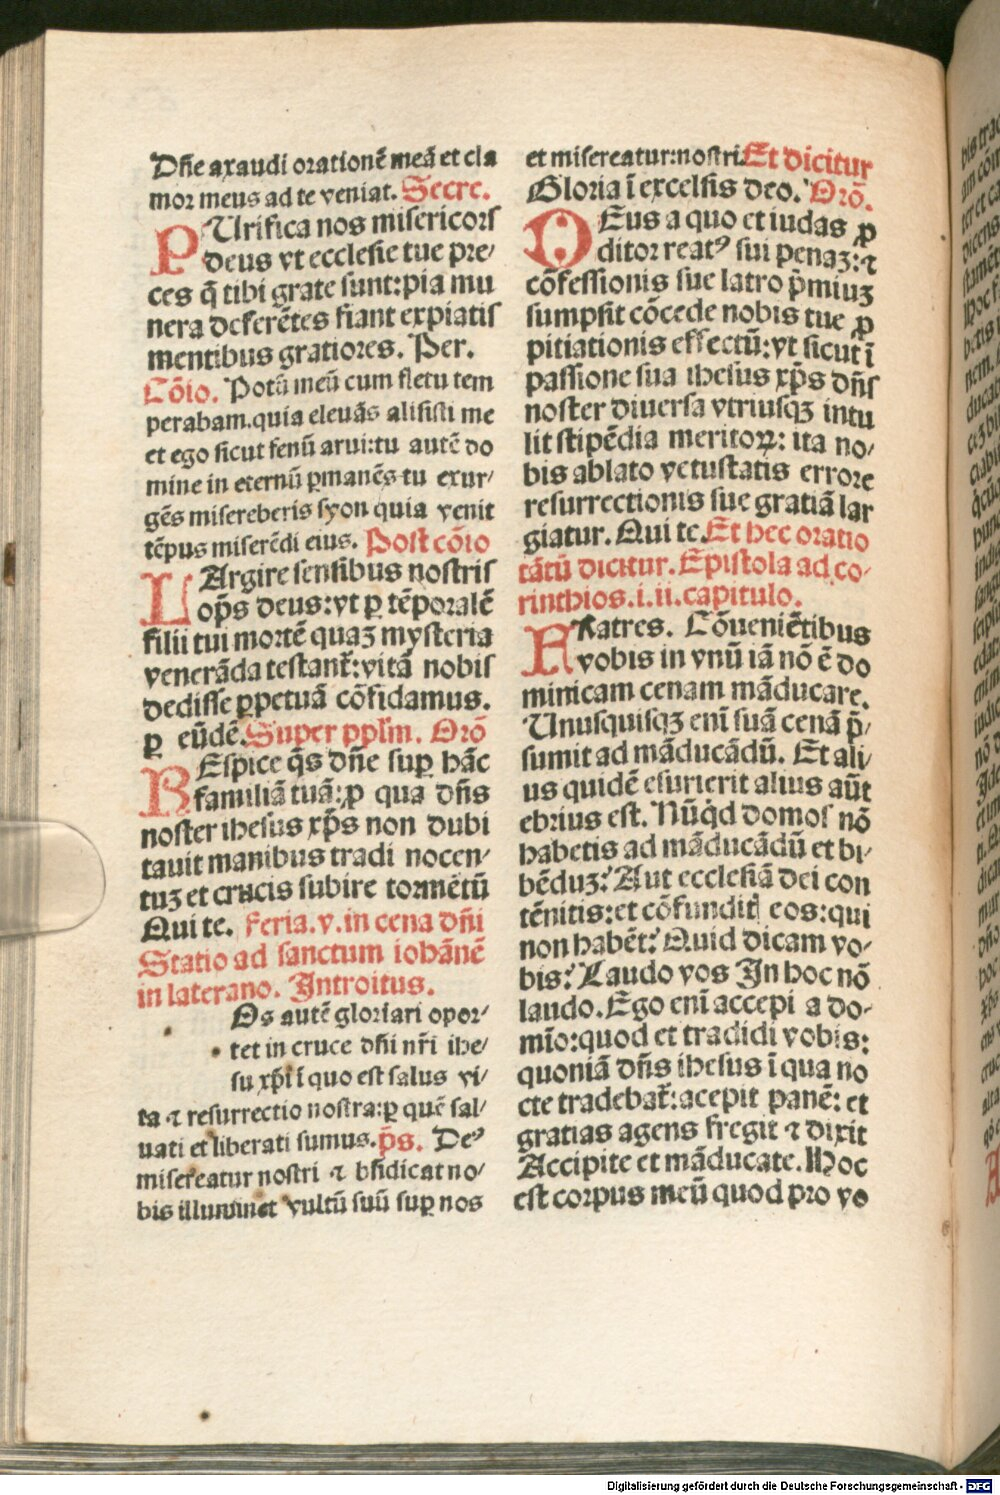 Dñe axaudi orationē meā et cla
mor meus ad te veniat. Secre.
PUrifica nos misericors
deus vt ecclesie tue pre⸗
ces q̄ tibi grate sunt:pia mu
nera deferētes fiant expiatis
mentibus gratiores. Per.
Cōio. Potū meū cum fletu tem
perabam.quia eleuās alisisti me
et ego sicut fenū arui:tu autē do
mine in eternū ꝑmanēs tu exur⸗
gēs misereberis syon quia venit
tēpus miserēdi eius. Post cōio
LArgire sensibus nostris
op̄s deus:vt ꝑ tēporalē
filii tui mortē quaꝫ mysteria
venerāda testant᷑:vitā nobis
dedisse ꝑpetuā cōfidamus.
ꝑ eūdē. Super pplm̄. Orō
REspice q̄s dñe suꝑ hāc
familiā tuā:ꝓ qua dñs
noster ihesus xp̄s non dubi
tauit manibus tradi nocen⸗
tuꝫ et crucis subire tormētū
Qui te. Feria.v.in cena dñi
Statio ad sanctum iohānē
in laterano. Introitus.
Os autē gloriari opor⸗
tet in cruce dñi nr̄i ihe⸗
su xp̄i ī quo est salus vi⸗
ta ⁊ resurrectio nostra:ꝑ quē sal⸗
uati et liberati sumus. p̄s. Deꝰ
misereatur nostri ⁊ bñdicat no⸗
bis illuminet vultū suū suꝑ nos
et misereatur:nostri. Et dicitur
Gloria ī excelsis deo. Orō.
DEus a quo et iudas ꝓ
ditor reatꝰ sui penaꝫ:⁊
cōfessionis sue latro p̄miuꝫ
sumpsit cōcede nobis tue ꝓ
pitiationis effectū:vt sicut ī
passione sua ihesus xp̄s dñs
noster diuersa vtriusqꝫ intu
lit stipēdia meritoꝝ: ita no⸗
bis ablato vetustatis errore
resurrectionis sue gratiā lar
giatur. Qui te. Et hec oratio
tātū dicitur. Epistola ad co⸗
rinthios.i.ii.capitulo.
FRatres. Cōueniētibus
vobis in vnū iā nō ē do
minicam cenam māducare.
Unusquisqꝫ enī suā cenā p̄⸗
sumit ad māducādū. Et ali⸗
us quidē esurierit alius aūt
ebrius est. Nūq̇d domos nō
habetis ad māducādū et bi⸗
bēduꝫ? Aut ecclesiā dei con
tēnitis:et cōfundit eos:qui
non habēt? Quid dicam vo⸗
bis? Laudo vos In hoc nō
laudo. Ego enī accepi a do⸗
mīo:quod et tradidi vobis:
quoniā dñs ihesus ī qua no
cte tradebat᷑:acepit panē: et
gratias agens fregit ⁊ dixit
Accipite et māducate. Hoc
est corpus meū quod pro vo
Digitalisierung gefördert durch die Deutsche Forschungsgemeinschaft - DFG